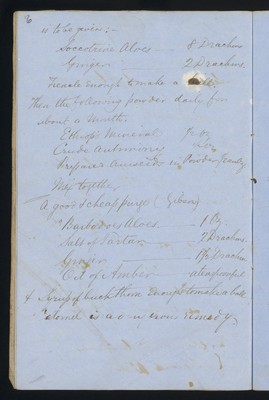 6
is to be given:-
Soccotrine Aloes — 8 Drachms
Ginger — 2 Drachms.
Treacle enough to make a
Then the following powder daily for
about a month.
Ethiops Mineral
Crude Antimony
Prepared Aniseeds in Powder
Mix together
A good & cheap purge (Gibson)
Barbadoes Aloes — 1
Salt of Tartar — 2 Drachms
Ginger — 1½ Drachm
Oil of Amber — a teaspoonful
& Syrup of buckthorn enough to make a ball
is a remedy